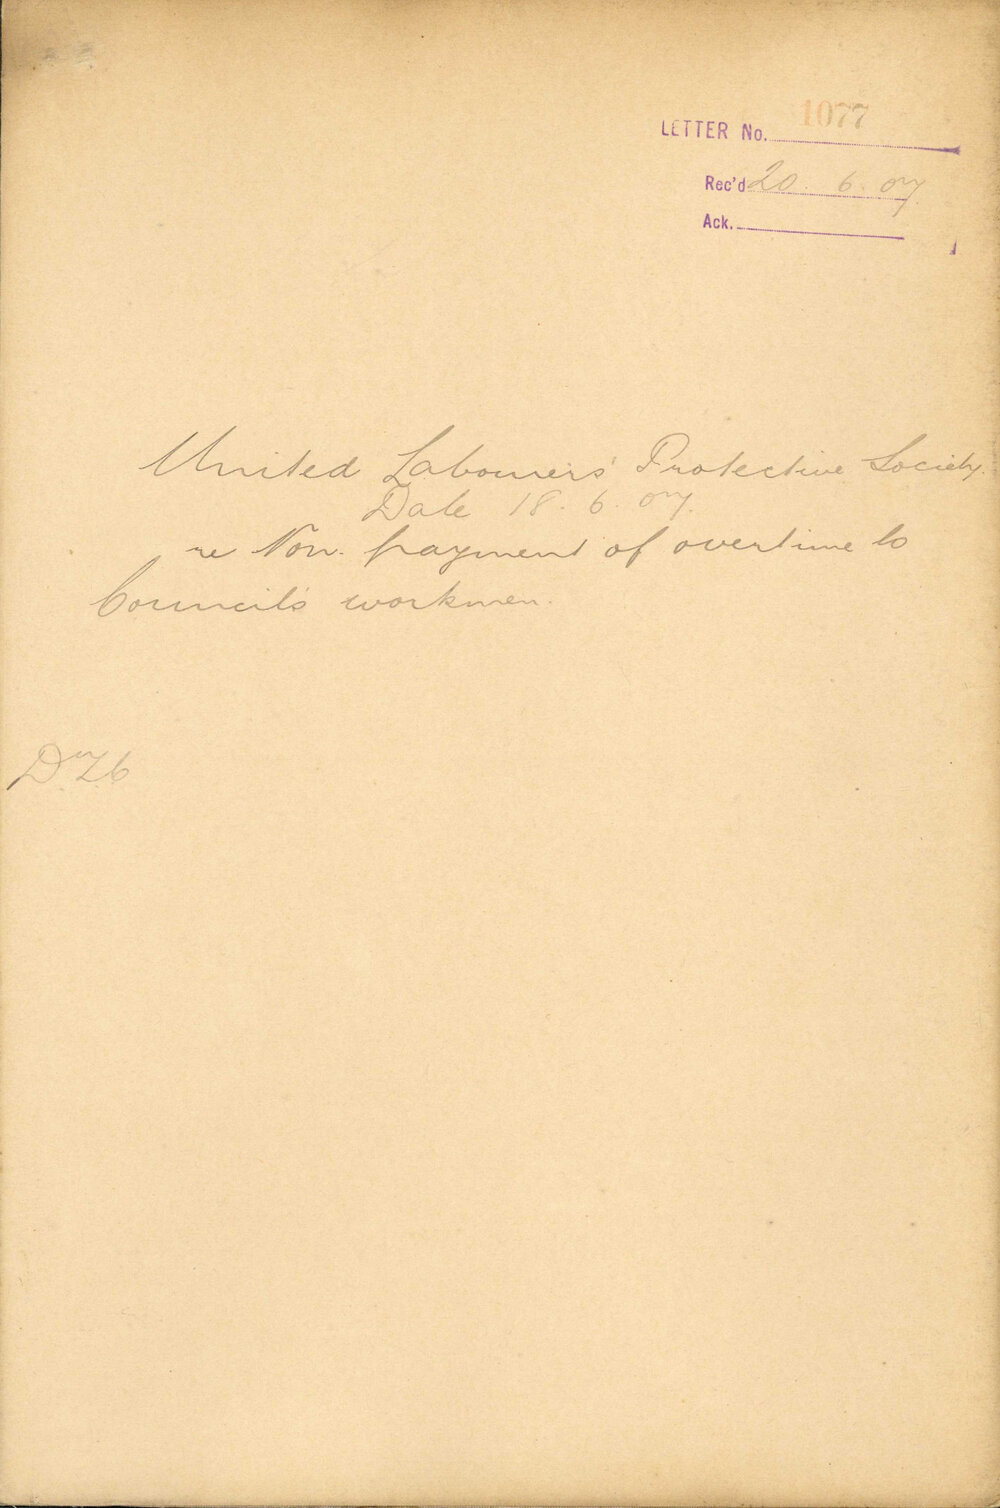 LETTER No. 1077
Rec'd 20. 6. 07
Ack.
United Labourers' Protective Society.
Date 18. 6. 07.
re Non. payment of overtime to
Council's workmen.